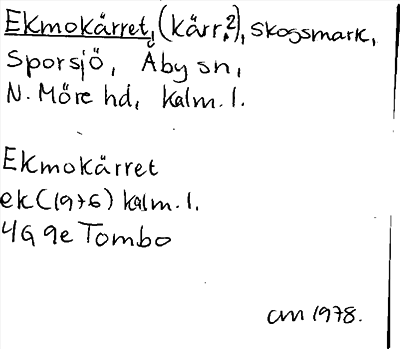 Ekmokärret, (kärr?), skogsmark,
Sporsjö, Åby sn,
N. Möre hd, Kalm. l.
Ekmokärret
ek (1976) Kalm. l.
4G 9e Tombo
am 1978.